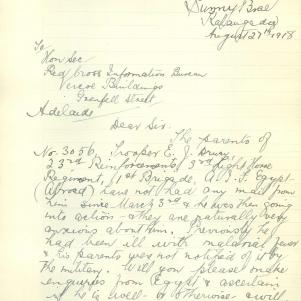 Sunny Brae
Kalangadoo
August 27th 1918
To
Hon Sec
Red Cross Information Bureau
Verco Buildings
Grenfell Street
Adelaide
Dear Sir.
The parents of
No. 3056. Trooper E. J. Drury
23rd Reinforcements, 3rd Light Horse
Regiment, 1st Brigade, A.I.F. Egypt
(Abroad) have not had any mail from
him since March 3rd & he was then going
into action - they are naturally very
anxious about him. Previously he
had been ill with malarial fever
& his parents was not notified of it by
the military. Will you please make
enquiries from Egypt & ascertain
if he is well or otherwise &